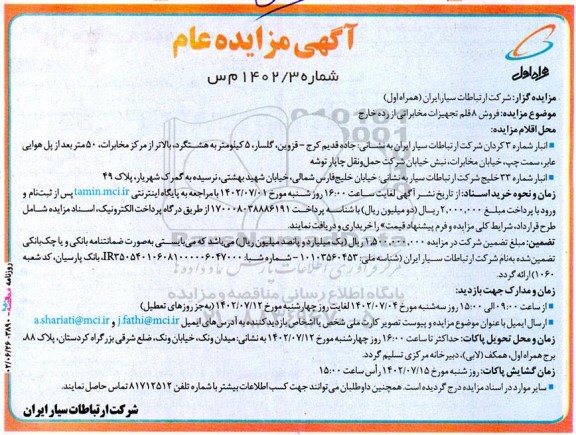 همراه اول
آگهی مزایده عام
شماره ۱۴۰۲/۳ م س
مزایده گزار: شرکت ارتباطات سیار ایران (همراه اول)
موضوع مزایده: فروش ۸ قلم تجهیزات مخابراتی از رده خارج
محل اقلام مزایده:
• انبار شماره ۳ کردان شرکت ارتباطات سیار ایران به نشانی: جاده قدیم کرج – قزوین، گلسار، ۵ کیلومتر به هشتگرد، بالاتر از مرکز مخابرات، ۵۰ متر بعد از پل هوایی
عابر، سمت چپ، خیابان مخابرات، نبش خیابان شرکت حمل‌ونقل چاپار توشه
• انبار شماره ۳۳ خلیج شرکت ارتباطات سیار به نشانی: خیابان خلیج فارس شمالی، خیابان شهید بهشتی، نرسیده به گمرک شهریار، پلاک ۴۹
زمان و نحوه خرید اسناد: از تاریخ نشر آگهی لغایت ساعت ۱۶:۰۰ روز شنبه مورخ ۱۴۰۲/۰۷/۰۱ با مراجعه به پایگاه اینترنتی tamin.mci.ir پس از ثبت‌نام و
ورود با پرداخت مبلغ ۲,۰۰۰,۰۰۰ ریال (دو میلیون ریال) با شناسه پرداخت ۱۷۰۰۰۸۰۳۸۸۸۶۱۹۱ از طریق درگاه پرداخت الکترونیک، اسناد مزایده شامل
طرح قرارداد، شرایط کلی مزایده و فرم پیشنهاد قیمت» را خریداری و دریافت نمایند.
تضمین: مبلغ تضمین شرکت در مزایده ۱,۵۰۰,۰۰۰,۰۰۰ ریال (یک میلیارد و پانصد میلیون ریال) می‌باشد که می‌بایستی به‌صورت ضمانتنامه بانکی و یا چک بانکی
تضمین شده به‌نام شرکت ارتباطات سیار ایران (شناسه ملی: ۱۰۱۰۳۵۶۰۴۵۳ – شماره حساب IR۳۵۰۵۴۰۱۰۶۰۸۱۰۰۰۰۰۶۰۴۷۰۰۰، بانک پارسیان، کد شعبه
۱۰۶۰) ارائه گردد.
زمان و مدارک جهت بازدید:
• از ساعت ۰۹:۰۰ الی ۱۵:۰۰ روز سه‌شنبه مورخ ۱۴۰۲/۰۷/۰۴ لغایت روز چهارشنبه مورخ ۱۴۰۲/۰۷/۱۲ (به‌جز روزهای تعطیل)
• ارسال ایمیل با عنوان موضوع مزایده و پیوست تصویر کارت ملی شخص یا اشخاص بازدیدکننده به آدرس‌های ایمیل j.fathi@mci.ir و a.shariati@mci.ir
زمان و محل تحویل پاکات: حداکثر تا ساعت ۱۶:۰۰ روز چهارشنبه مورخ ۱۴۰۲/۰۷/۱۲ به نشانی: میدان ونک، خیابان ونک، ضلع شرقی بزرگراه کردستان، پلاک ۸۸،
برج همراه اول، همکف (لابی)، دبیرخانه مرکزی تسلیم گردد.
زمان گشایش پاکات: روز شنبه مورخ ۱۴۰۲/۰۷/۱۵ رأس ساعت ۱۵:۰۰
• سایر موارد در اسناد مزایده درج گردیده است. همچنین داوطلبان می‌توانند جهت کسب اطلاعات بیشتر با شماره تلفن ۸۱۷۱۲۵۱۲ تماس حاصل نمایند.
شرکت ارتباطات سیار ایران
پایگاه اطلاع رسانی مناقصه و مزایده